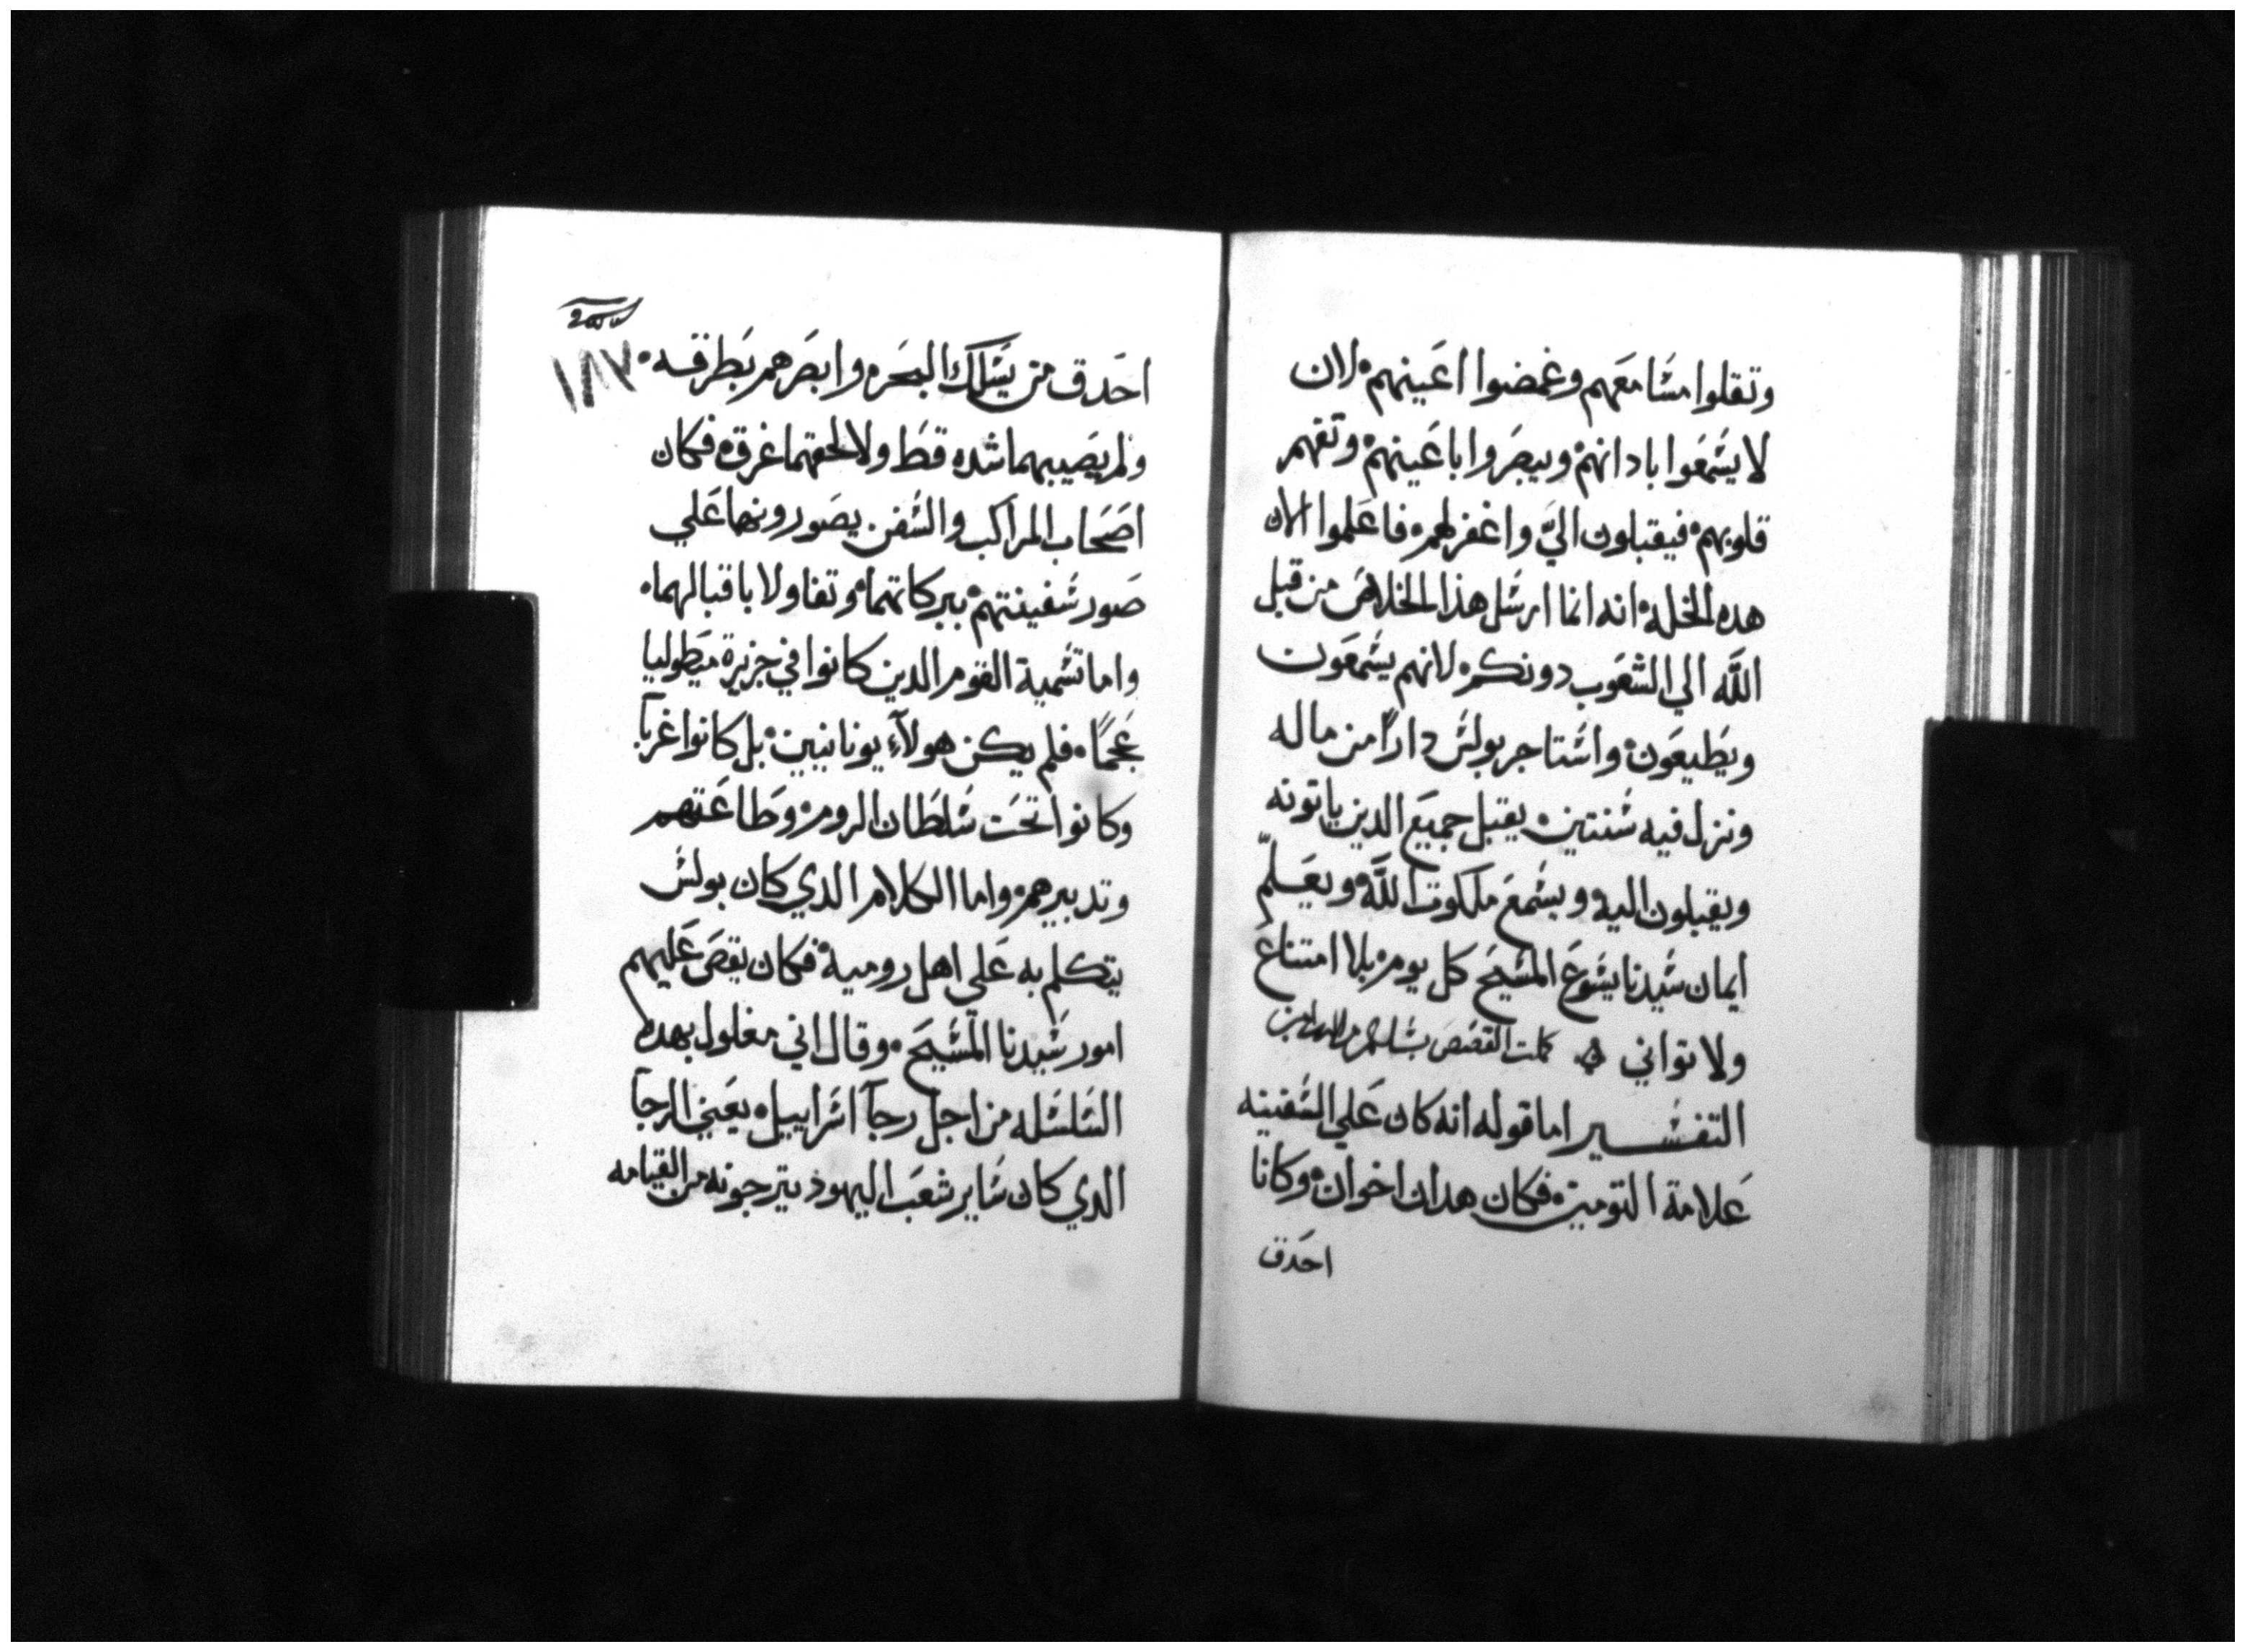 وتقلوا مشامعهم وغمضوا اعينهم لان
لا يشمعوا بادانهم ويبصروا باعينهم وتفهم
قلوبهم فيقبلون اليّ واغفر لهم فاعلموا الان
هده الخله انه انما ارشل هذا الخلاص من قبل
اللَّه الي الشعوب دونكم لانهم يشمعون
ويطيعون واشتاجر بولش دارًا من ماله
ونزل فيه شنتين يقبل جميع الدين ياتونه
ويقبلون اليه ويشمع ملكوت اللَّه ويعلّم
ايمان شيدنا يشوع المشيح كل يوم بلا امتناع
ولا تواني كملت القصص بشلام من الله امين
التفشير اما قوله انه كان علي الشفينه
علامة التومين فكان هدان اخوان وكانا
احدق
١٨٧
احدق من يشلك البحر وابصرهم بطرقه
ولم يصيبهما شده قط ولا لحقهما غرق فكان
اصحاب المراكب والشفن يصورونهما علي
صور شفينتهم ببركاتهما وتفاولا باقبالهما
واما تشمية القوم الدين كانوا في جزيرة ميطوليا
عجمًا فلم يكن هولآء يونانيين بل كانوا غربآ
وكانوا تحت شلطان الروم وطاعتهم
وتدبيرهم واما الكلام الدي كان بولش
يتكلم به علي اهل رومية فكان يقص عليهم
امور شيدنا المشيح وقال اني مغلول بهده
الشلشله من اجل رجآ اشراييل يعني الرجآ
الدي كان شاير شعب اليهود يترجونه من القيامه